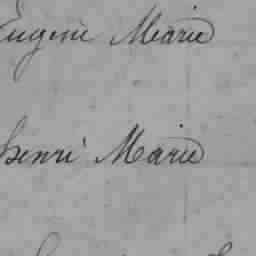 Eugène Marie
henri Marie